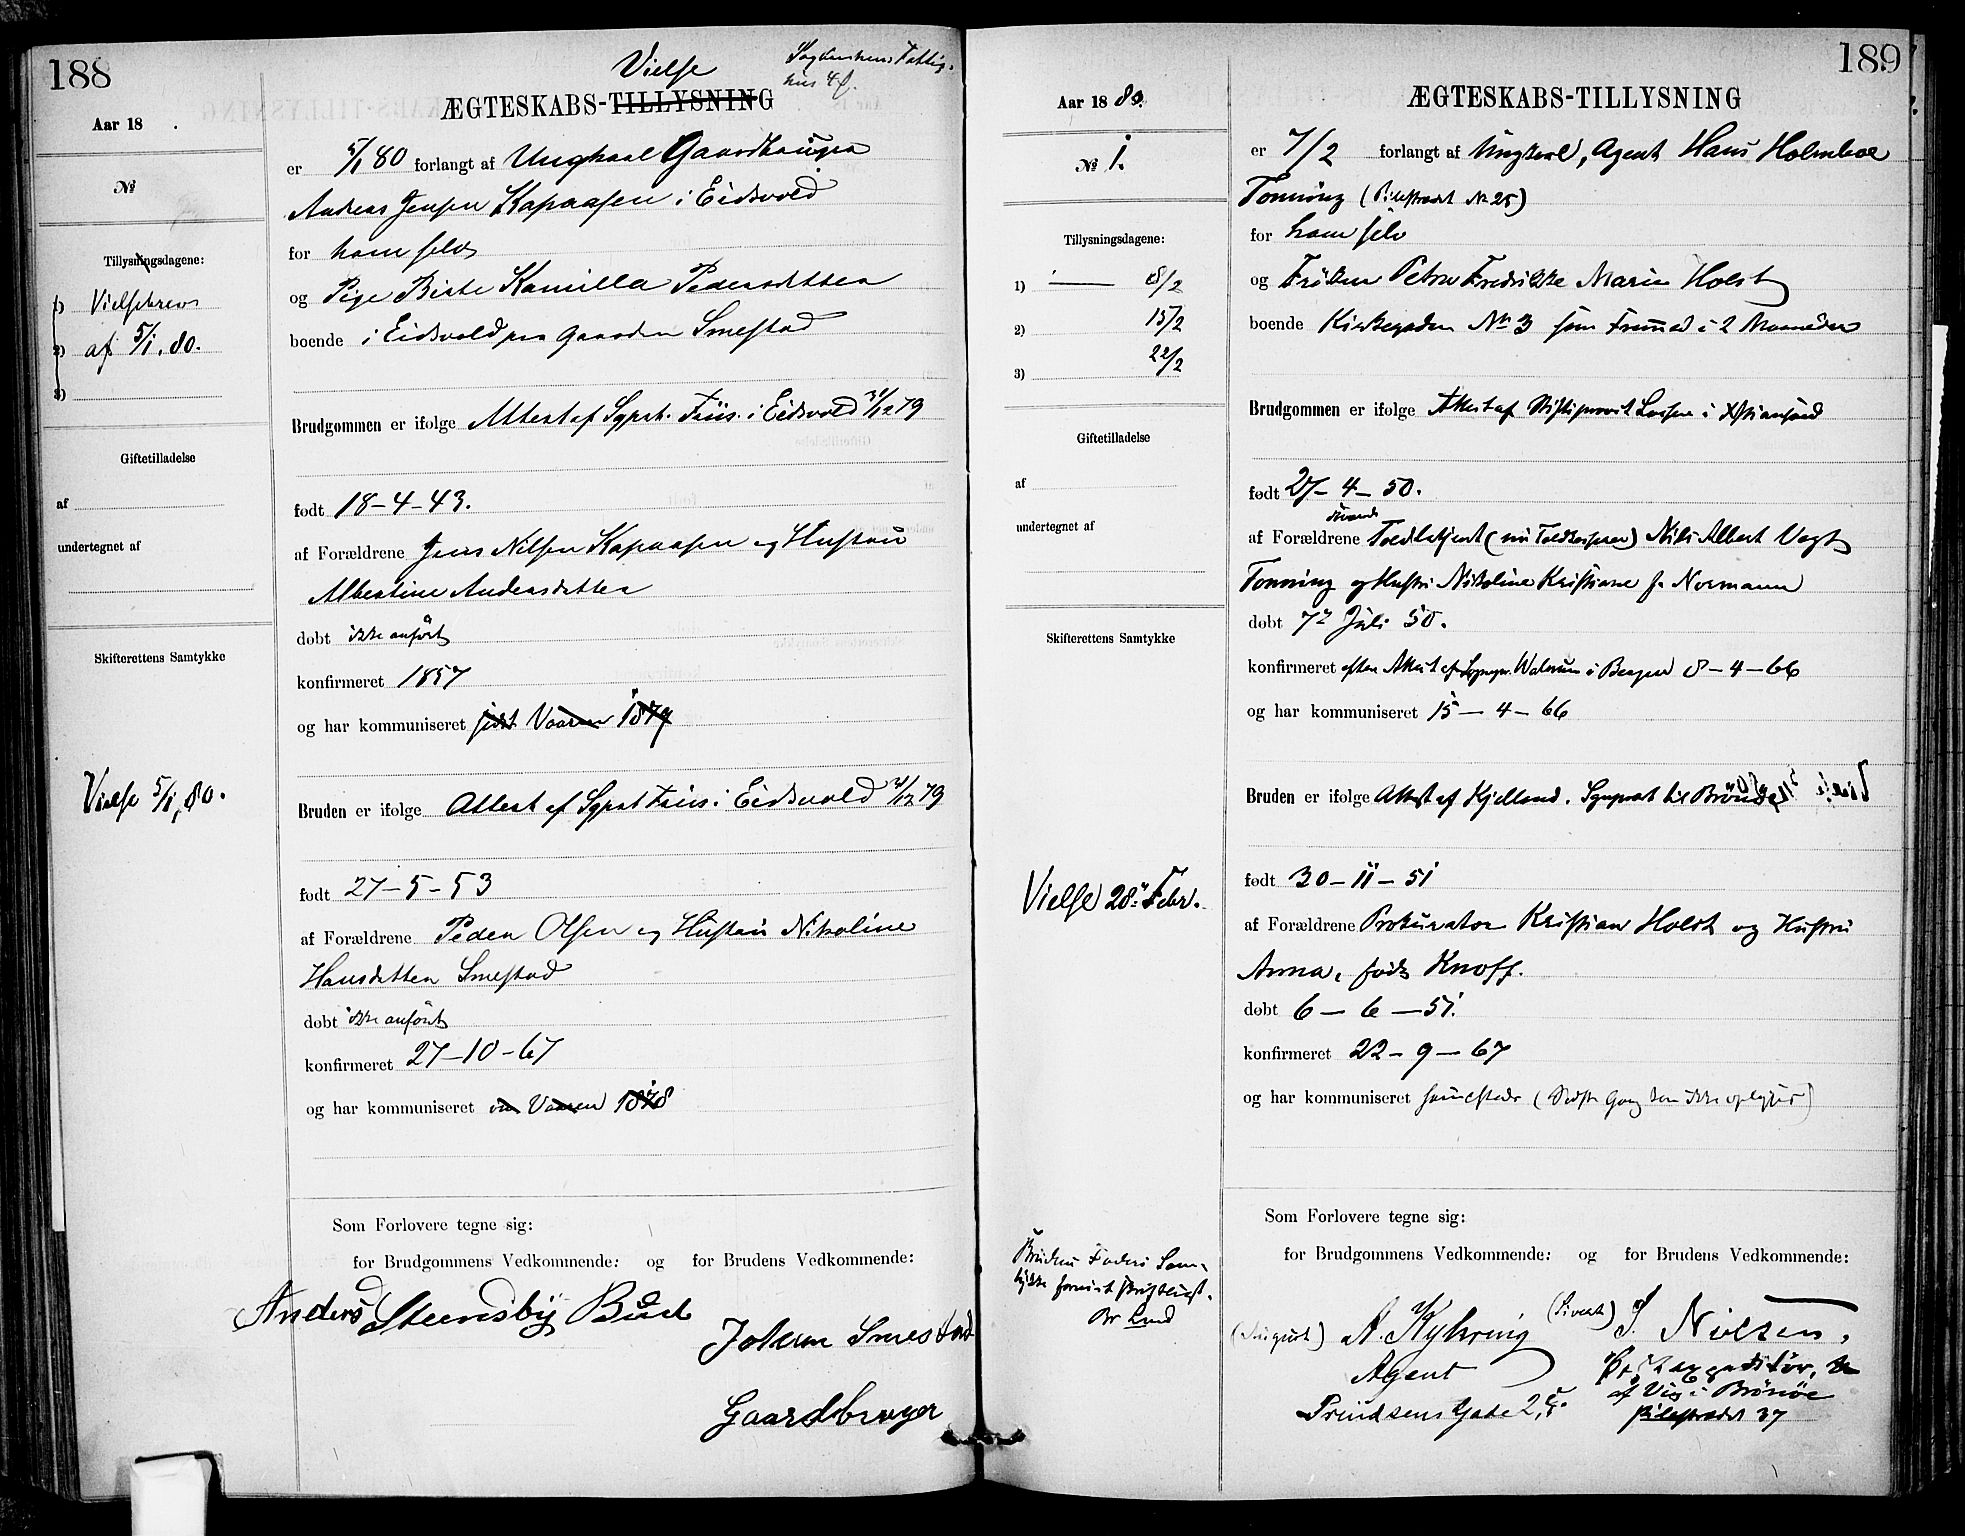 188
Vielse
hus 4f.
ÆGTESKABS-TILLYSNING
Aar 18 .
№
Tillysningsdagene:
1) Vielsebrev
2) af 5/1. 80.
3)
Giftetilladelse
af
undertegnet af
Skifterettens Samtykke
Vielse 5/1, 80.
er 5/1 80 forlangt af Ungkarl Gaardbruger
Andreas Jensen Kapaasen i Eidsvold
for ham selv
og Pige Birte Kamilla Pedersdatter
boende i Eidsvold paa Gaarden Smestad
Brudgommen er ifølge Attest af Sgprst. Friis i Eidsvold 31/12 79
født 18-4-43.
af Forældrene Jens Nilsen Kapaasen og Hustru
Albertine Andersdatter
døbt ikke anført
konfirmeret 1857
og har kommuniseret sidst Vaaren 1879
Bruden er ifølge Attest af Sgprst Friis i Eidsvold 31/12 79
født 27-5-53
af Forældrene Peder Olsen og Hustru Nikoline
Hansdatter Smestad
døbt ikke anført
konfirmeret 27-10-67
og har kommuniseret Vaaren 1878
Som Forlovere tegne sig:
for Brudgommens Vedkommende: og for Brudens Vedkommende:
Anders Steensby Bud
Johan Smestad
Gaardbruger
189
ÆGTESKABS-TILLYSNING
Aar 1880.
№ 1.
Tillysningsdagene:
1) 8/2
2) 15/2
3) 22/2
Giftetilladelse
af
undertegnet af
Skifterettens Samtykke
Vielse 28. Febr.
Brudens Faders Sam-
tykke forevist skriftligt.
Br Lund
er 7/2 forlangt af Ungkarl, Agent Hans Holmboe
Tonning (Pilestrædet № 25)
for ham selv
og Frøken Petra Fredrikke Marie Holst
boende Kirkegaden № 3 som Fremmed i 2 Maaneder
Brudgommen er ifølge Attest af Stiftsprovst Lassen i Kristiansund
født 27-4-50.
af Forældrene Toldbetjent (nu Toldkasserer) Nils Albert Vogt
Tonning og Hustru Nikoline Kristiane f. Normann
døbt 7de Juli 50.
konfirmeret efter Attest af Sognepr. Walnum i Bergen 8-4-66
og har kommuniseret 15-4-66
Bruden er ifølge Attest af Kjelland. Sgnprst til Brønø
født 30-11-51
af Forældrene Prokurator Kristian Holst og Hustru
Anna, født Knoff.
døbt 6-6-51.
konfirmeret 22-9-67
og har kommuniseret sammesteds (Sidste Gang kan ikke oplyses)
Som Forlovere tegne sig:
for Brudgommens Vedkommende: og for Brudens Vedkommende:
(August) A. Kyhring (Sivert) S. Nielsen,
Agent
Prindsens Gade 2,
af Vig i Brønøe
Pilestrædet 37